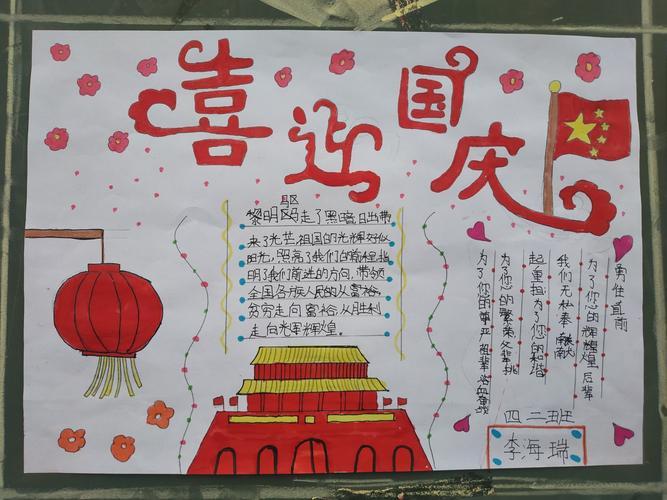 喜迎国庆
黎明驱走了黑暗日出带
来了光芒,祖国的光辉好似
阳光,照亮了我们的前程,指
明了我们前进的方向,带领
全国各族人民的从富裕、
贫穷走向富裕从胜利
走向光军辉煌。
为了您的尊严祖辈浴血奋战
为了您的繁荣父辈挑
起重担为了您的和谐
我们无私奉献
为了您的辉辉煌后辈
勇往直前
四二班
李海瑞